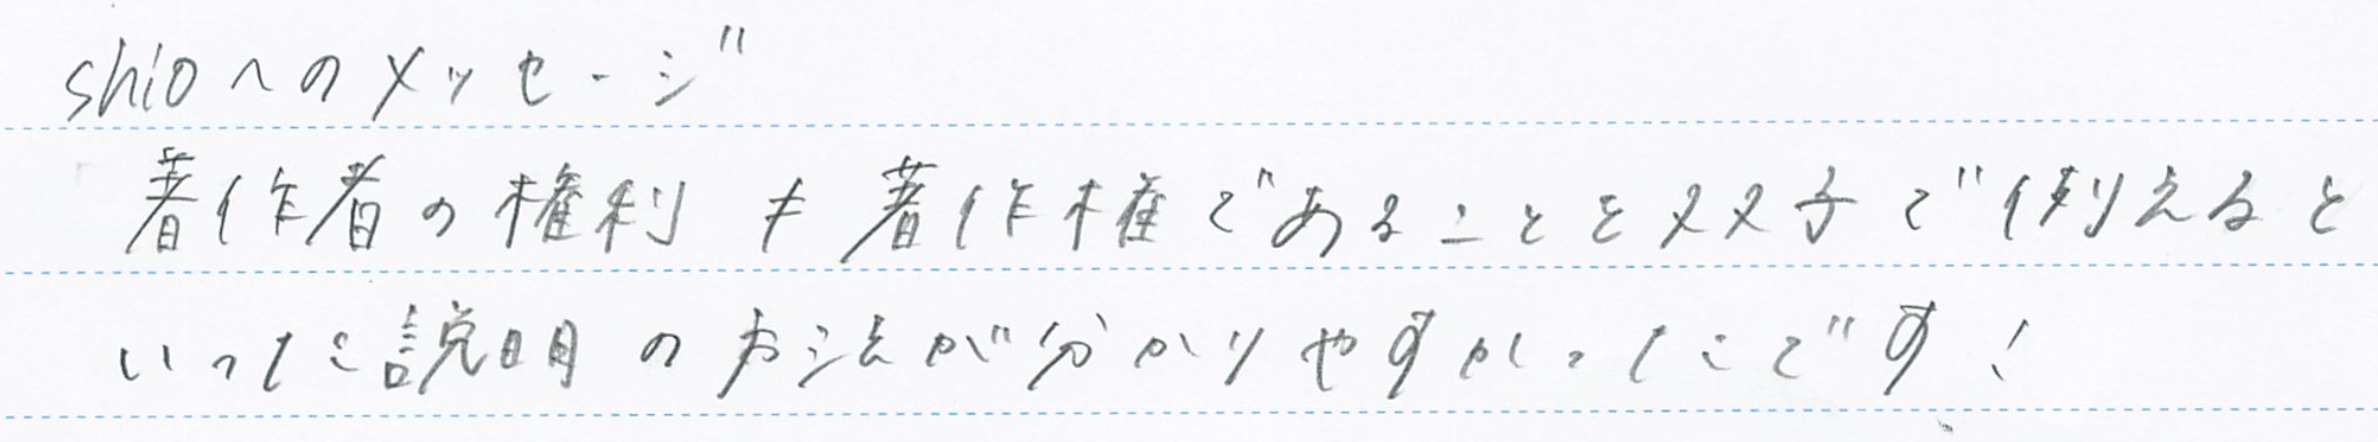 shioへのメッセージ
著作者の権利≠著作権であることを双子で例えると
いった説明の方法が分かりやすかったです！